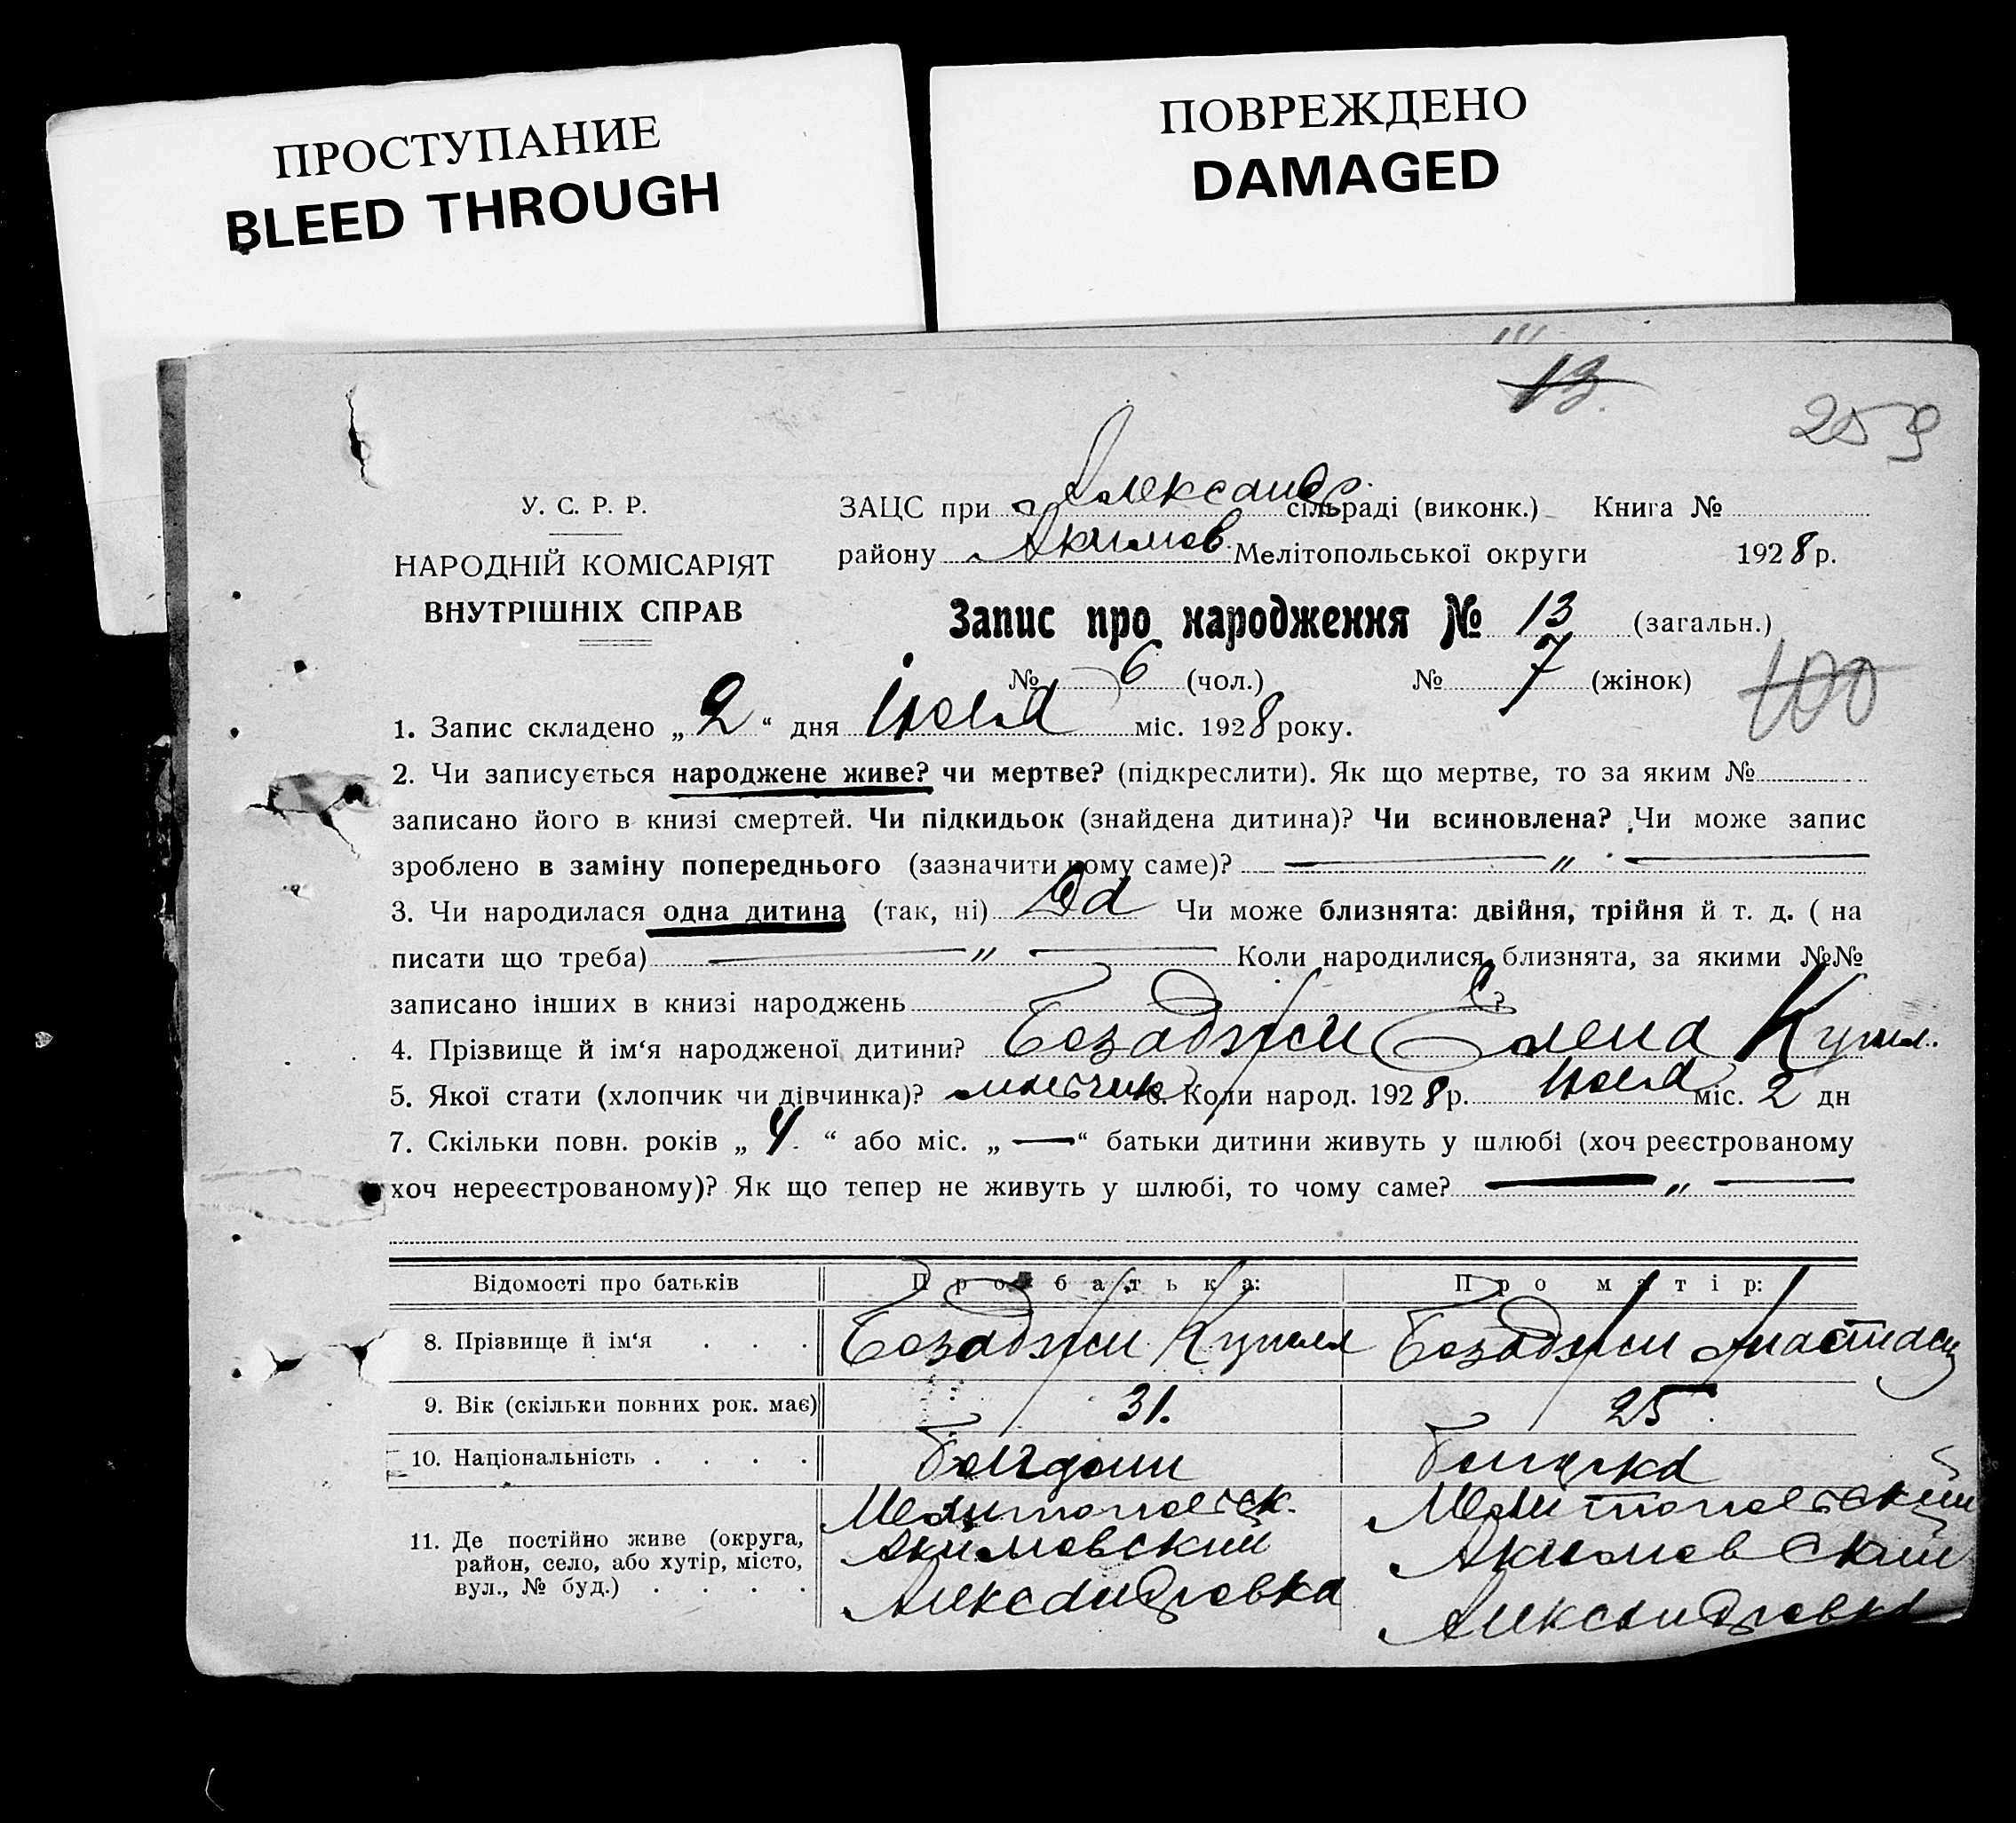 ПРОСТУПАНИЕ
BLEED THROUGH
ПОВРЕЖДЕНО
DAMAGED
13.
259
У. С. Р. Р.
НАРОДНІЙ КОМІСАРІЯТ
ВНУТРІШНІХ СПРАВ
ЗАЦС при Александр. сільраді (виконк.) Книга №
району Акимов. Мелітопольської округи 1928 р.
Запис про народження № 13 (загальн.)
№ 6 (чол.) № 7 (жінок)
100
1. Запис складено „ 2 “ дня міс. 1928 року.
2. Чи записується народжене живе? чи мертве? (підкреслити). Як що мертве, то за яким №
записано його в книзі смертей. Чи підкидьок (знайдена дитина)? Чи всиновлена? Чи може запис
зроблено в заміну попереднього (зазначити кому саме)? — „ —
3. Чи народилася одна дитина (так, ні) Да Чи може близнята: двійня, трійня й т. д. ( на
писати що треба) — „ — Коли народилися близнята, за якими №№
записано інших в книзі народжень ?
4. Прізвище й ім‘я народженої дитини? Безаджи Елена
5. Якої стати (хлопчик чи дівчинка)? мальчик 6. Коли народ. 1928 р. міс. 2 дн
7. Скільки повн. років „ 4. “ або міс. „ — “ батьки дитини живуть у шлюбі (хоч реєстрованому
хоч нереєстрованому)? Як що тепер не живуть у шлюбі, то чому саме? — „ —
Відомості про батьків Про батька: Про матір:
8. Прізвище й ім‘я . . . Безаджи Безаджи Анастасия
9. Вік (скільки повних рок. має) 31. 25.
10. Національність . . . .
11. Де постійно живе (округа,
район, село, або хутір, місто,
вул., № буд.) . . . .
Мелитопольск. Мелитопольский
Акимовский Акимовский
Александровка Александровка